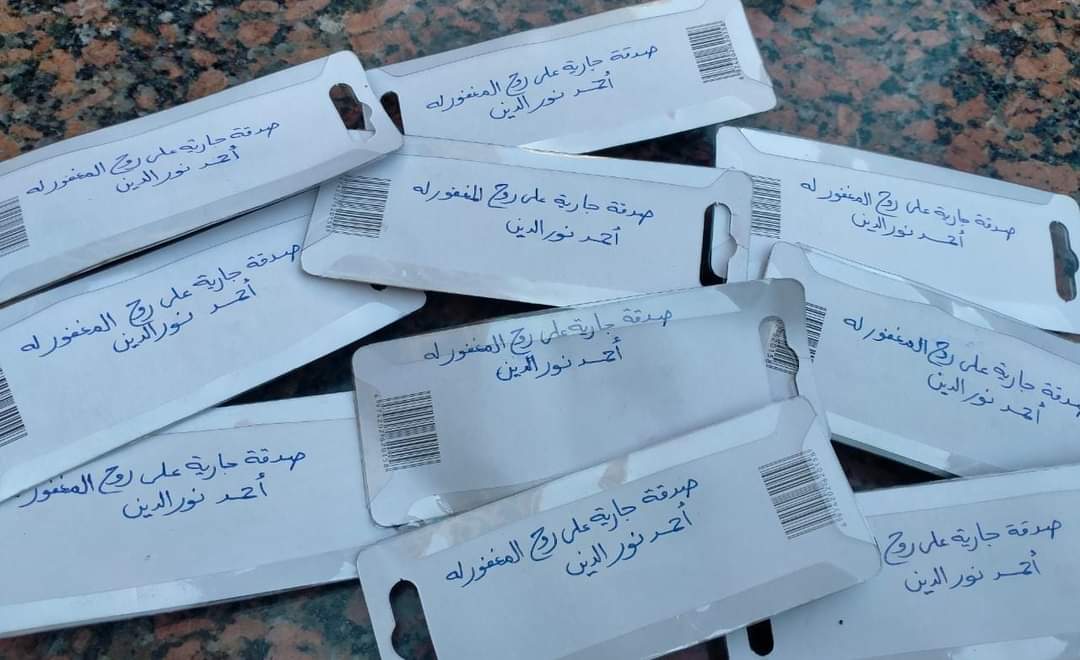 صدقة جارية على روح المغفور له
أحمد نور الدين
صدقة جارية على روح المغفور له
أحمد نور الدين
صدقة جارية على روح المغفور له
أحمد نور الدين
صدقة جارية على روح المغفور له
أحمد نور الدين
صدقة جارية على روح المغفور له
أحمد نور الدين
صدقة جارية على روح المغفور له
أحمد نور الدين
صدقة جارية على روح المغفور له
أحمد نور الدين
صدقة جارية على روح المغفور
أحمد نور الدين
صدقة جارية على روح المغفور له
أحمد نور الدين
صدقة جارية على روح
أحمد نور الدين